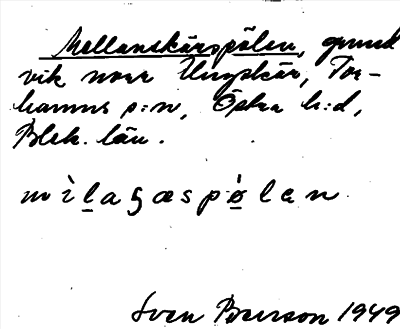 Mellanskärspölen, grund
vik norr Ungskär, Tor-
hamns s:n, Östra h:d,
Blek. län.
mìlaʒæspölen
Sven Benson 1949